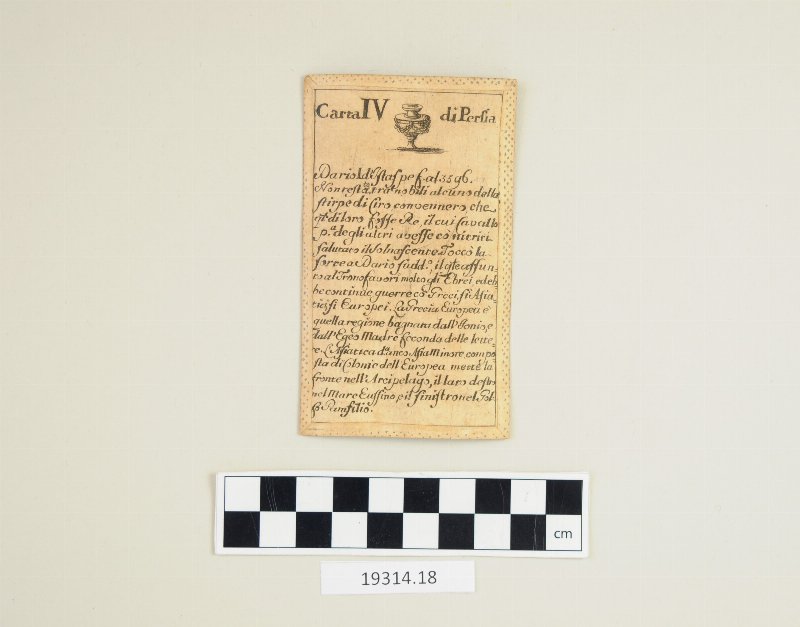 Carta IV di Persia
Dario I. d'Istaspe f. al 3596.
Non restãdo nobili alcuno della
stirpe di Ciro convennero che
qḙ. di loro fosse Re, il cui Cavallo
pᵃ. degli altri avesse co nitriti
salutato il Sol nascente. Toccò la
sorte a Dario sudd.º, il qle assun-
to al Trono favorì molto gli Ebrei, ed eb-
be continue guerre cõ Greci sì Asia-
tici, sì Europei. La Grecia Europea è
quella regione bagnata dall'Ionio, e
dall'Egeo Madre feconda delle lette-
re. L'Asiatica dᵃ. anco Asia Minore compo-
sta di Colonie dell'Europea mette la
fronte nell'Arcipelago, il lato destro
nel Mare Eussino, e il sinistro nel Gol-
fo Pamfilio.
cm
19314.18